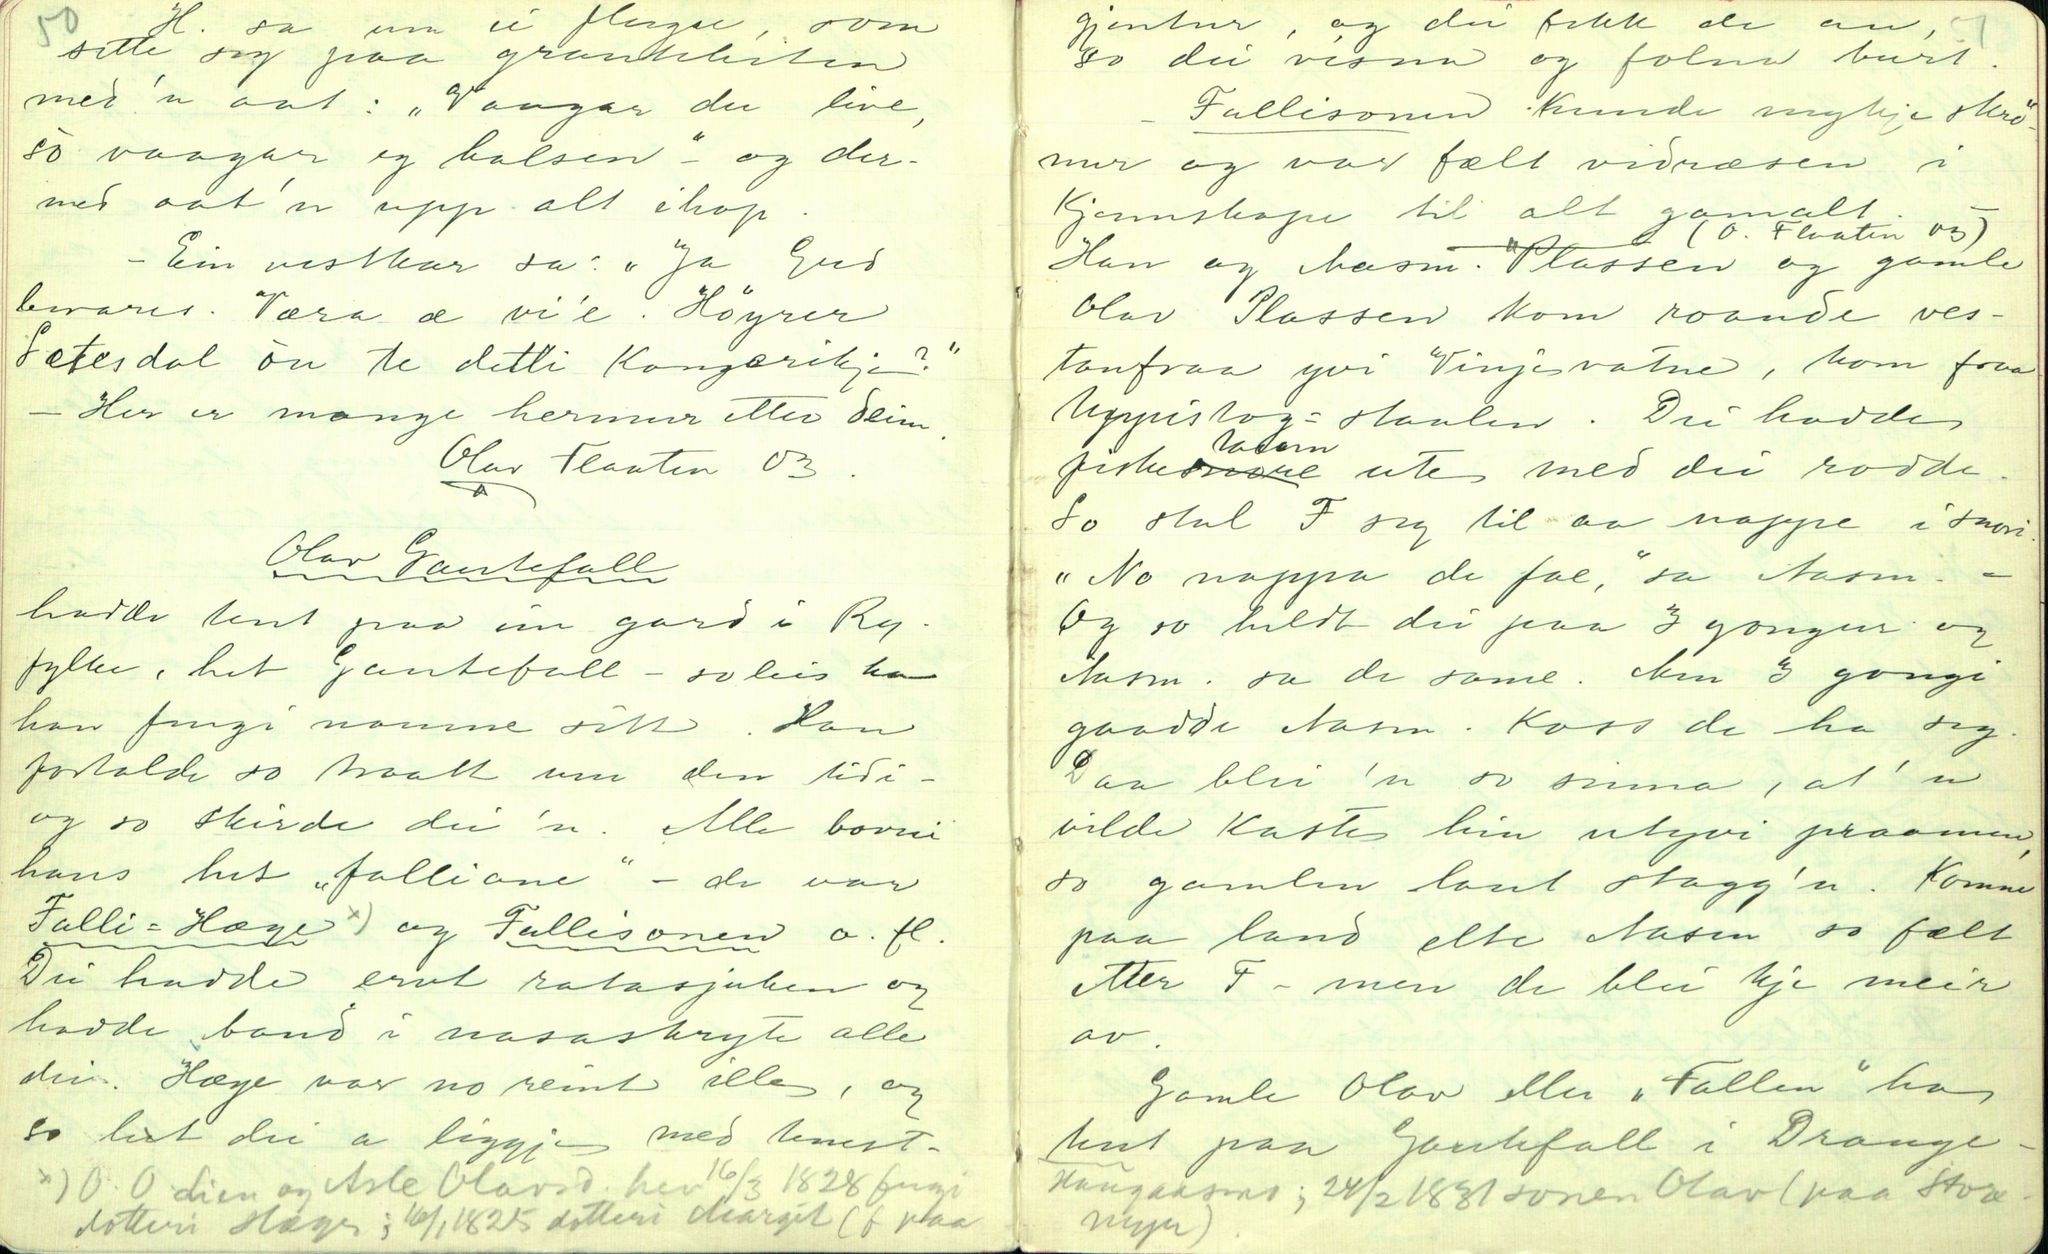 50
H. sa um ei fluge, som
sette seg paa grautkliten
med 'n aat: „Vaagar du live,
so vaagar eg halsen“ - og der-
med aat'n upp alt ihop.
- Ein vestkar sa: „Ja Gud
bevares. Væra æ vi'e. Höyrer
Sætesdal òn te detti Kongerikje?“
- Her er mange hermur etter deim.
Olav Flaaten 03.
Olav Gautefall
hadde tent paa ein gard i Ry-
fylke, het Gautefall - soleis
han fengi namne sitt. Han
fortalde so traatt um den tidi -
og so skirde dei 'n. Alle borni
hans het „falliane“ - de var
Falli-Hæge x) og Fallisonen o. fl.
Dei hadde ervt ratasjuken og
hadde band i nasastryte alle
dei. Hæge var no reint ille, og
so let dei a liggje med tenest-
x) O. O dien og Asle Olavsd. hev 16/3 1828 fengi
dotteri Hæge; 16/1 1825 dotteri Margit (f paa
51
gjentur, og dei fekk de au,
so dei visna og folna burt.
- Fallisonen kunde mykje skrö-
mur og var fælt vidræsen i
Kjennskape til alt gamalt.
(O. Flaaten 03)
Han og Aasm. Plassen og gamle
Olav Plassen kom roande ves-
tanfraa yvi Vinjevatne, kom fraa
Uppistog-staulen. Dei hadde
fiske ute med dei rodde.
So stal F seg til aa nappe i snöri.
„No nappa de fæl,“ sa Aasm. -
Og so heldt dei paa 3 gongur og
Aasm. sa de same. Men 3 gongi
gaadde Aasm. Koss de ha seg.
Daa blei 'n so sinna, at 'n
vilde kaste hin utyvi praamen,
so gamlen laut stagg'n. Komne
paa land elte Aasm so fælt
etter F - men de blei kje meir
av.
Gamle Olav eller „Fallen“ ha
tent paa Gautefall i Drange-
Haugaasmo; 24/2 1831 sonen Olav (paa Store-
nyye).